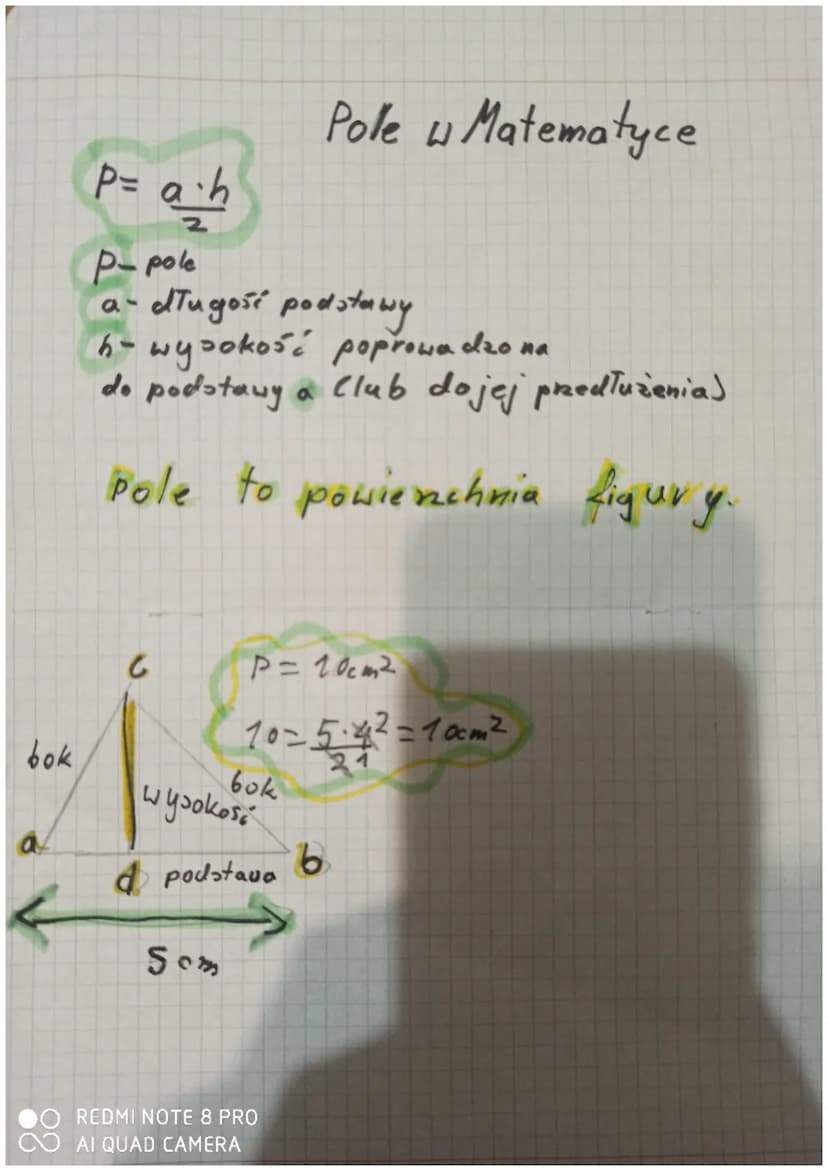 Pole w Matematyce
P = a·h
2
P - pole
a - długość podstawy
h - wysokość poprowadzona
do podstawy a (lub do jej przedłużenia)
Pole to powierzchnia figury.
c
P = 10cm²
10 = 5·4² = 10cm²
2 1
bok
bok
wysokość
a
b
d
podstawa
5 cm
REDMI NOTE 8 PRO
AI QUAD CAMERA